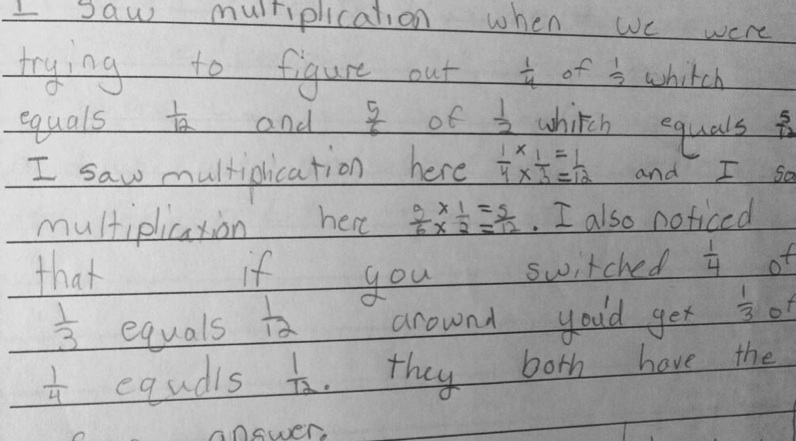 I saw multiplication when we were
trying to figure out 1/4 of 1/3 whitch
equals 1/12 and 5/6 of 1/2 whitch equals 5/12
I saw multiplication here 1/4 × 1/3 = 1/12 and I sa
multiplication here 5/6 × 1/2 = 5/12. I also noticed
that if you switched 1/4 of
1/3 equals 1/12 around you'd get 1/3 of
1/4 equals 1/12. they both have the
answer.